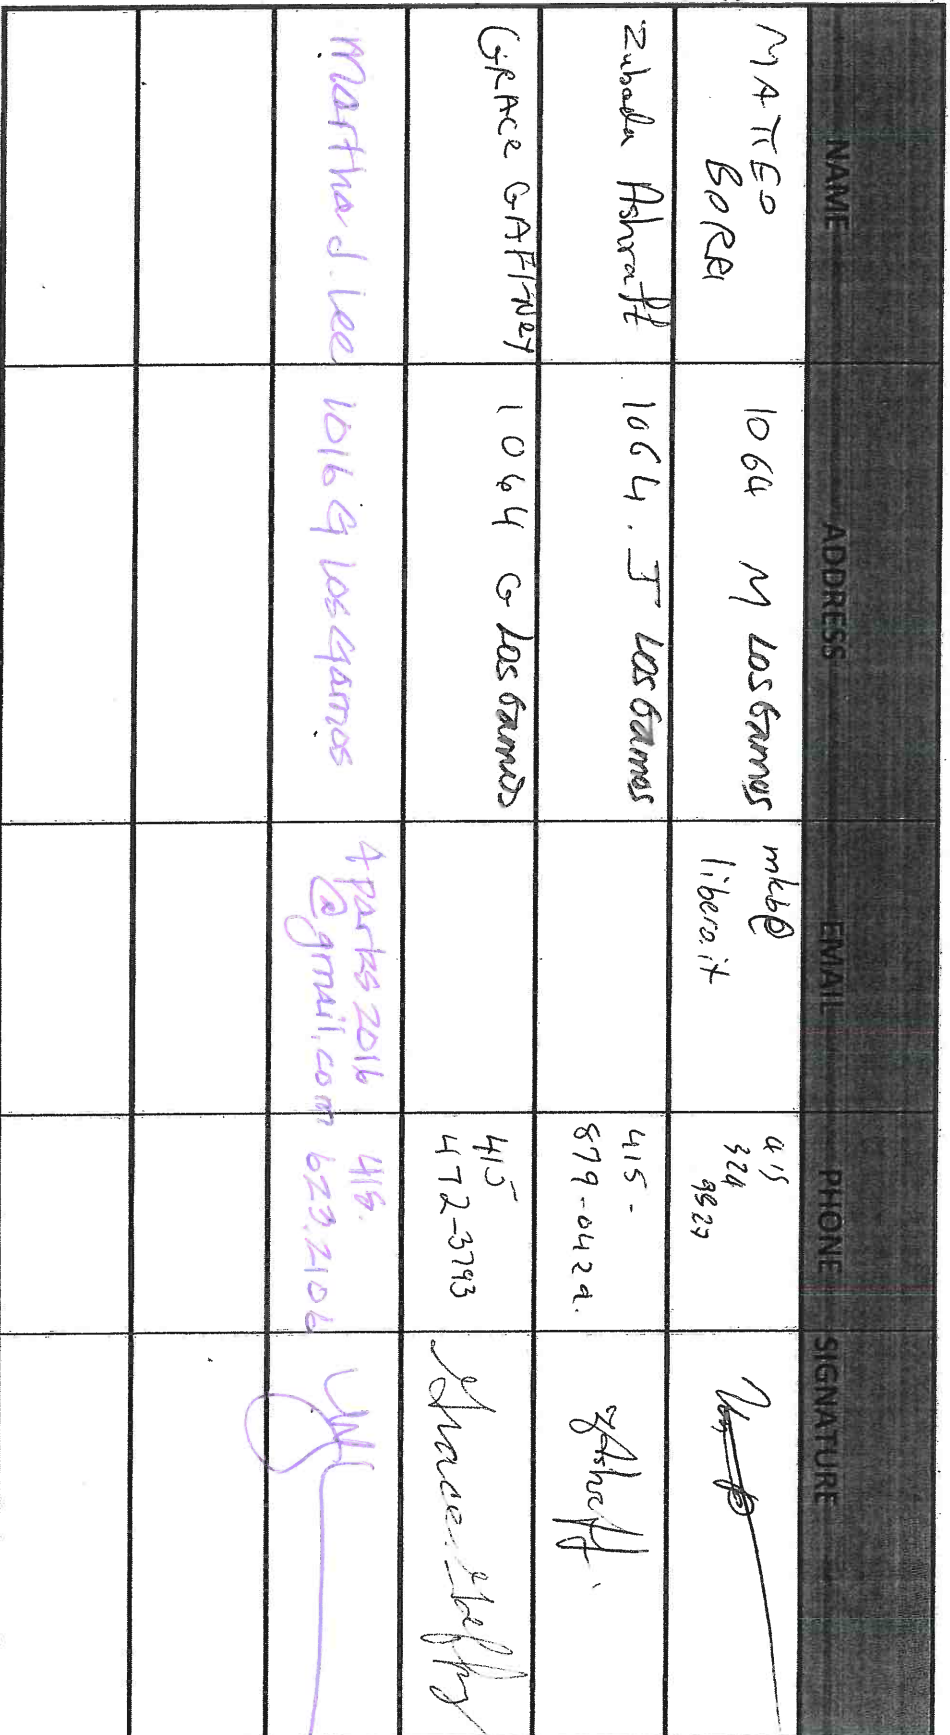 NAME ADDRESS EMAIL PHONE SIGNATURE
MATTEO
BORRI
1064 M Los Gamos
mkb@
libero.it
415
324
9827
Zubada Ashraft
1064. J Los Gamos
415-
879-0422.
ZAshraft.
GRACE GAFFNEY
1044 G Los Gamos
415
472-3793
Grace Gaffney
Martha J. Lee
1016 G Los Gamos
4parks2016
@gmail.com
415.
623.2106